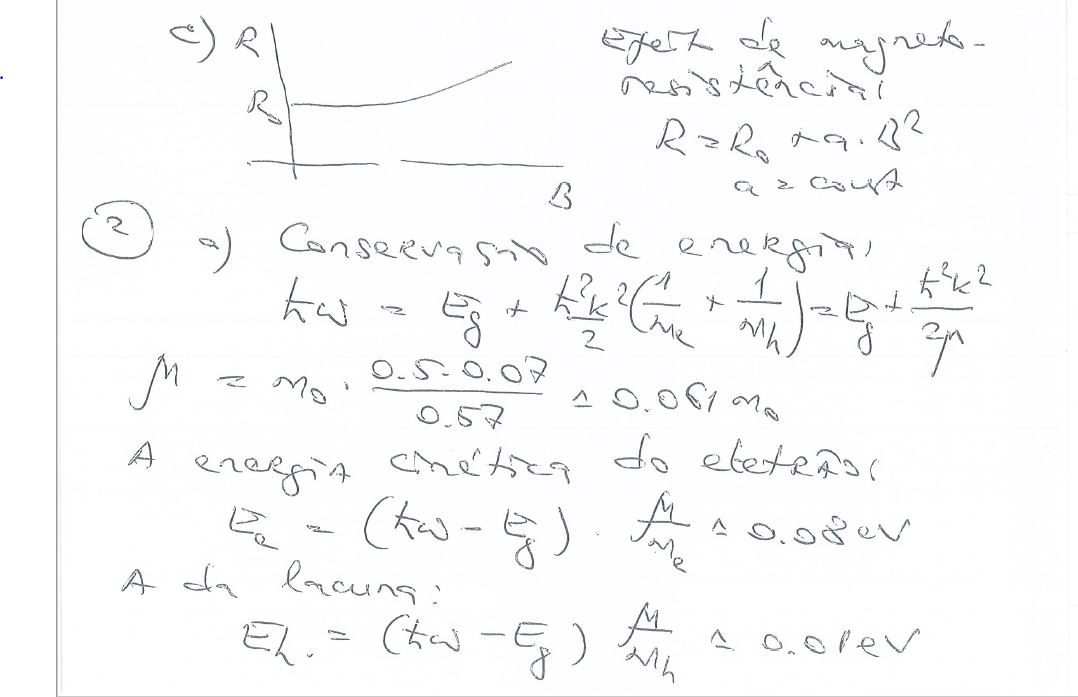 c) R
Efeito de magneto-
resistência:
R₀
R = R₀ + a · B²
a = const
B
② a) Conservação de energia:
ħω = E_g + ħ²k²/2 (1/m_e + 1/m_h) = E_g + ħ²k²/2μ
μ = m₀ · 0.5·0.07/0.57 ≈ 0.061 m₀
A energia cinética do eletrão:
E_e = (ħω - E_g) · μ/m_e ≈ 0.08 eV
A da lacuna:
E_h = (ħω - E_g) μ/m_h ≈ 0.01 eV